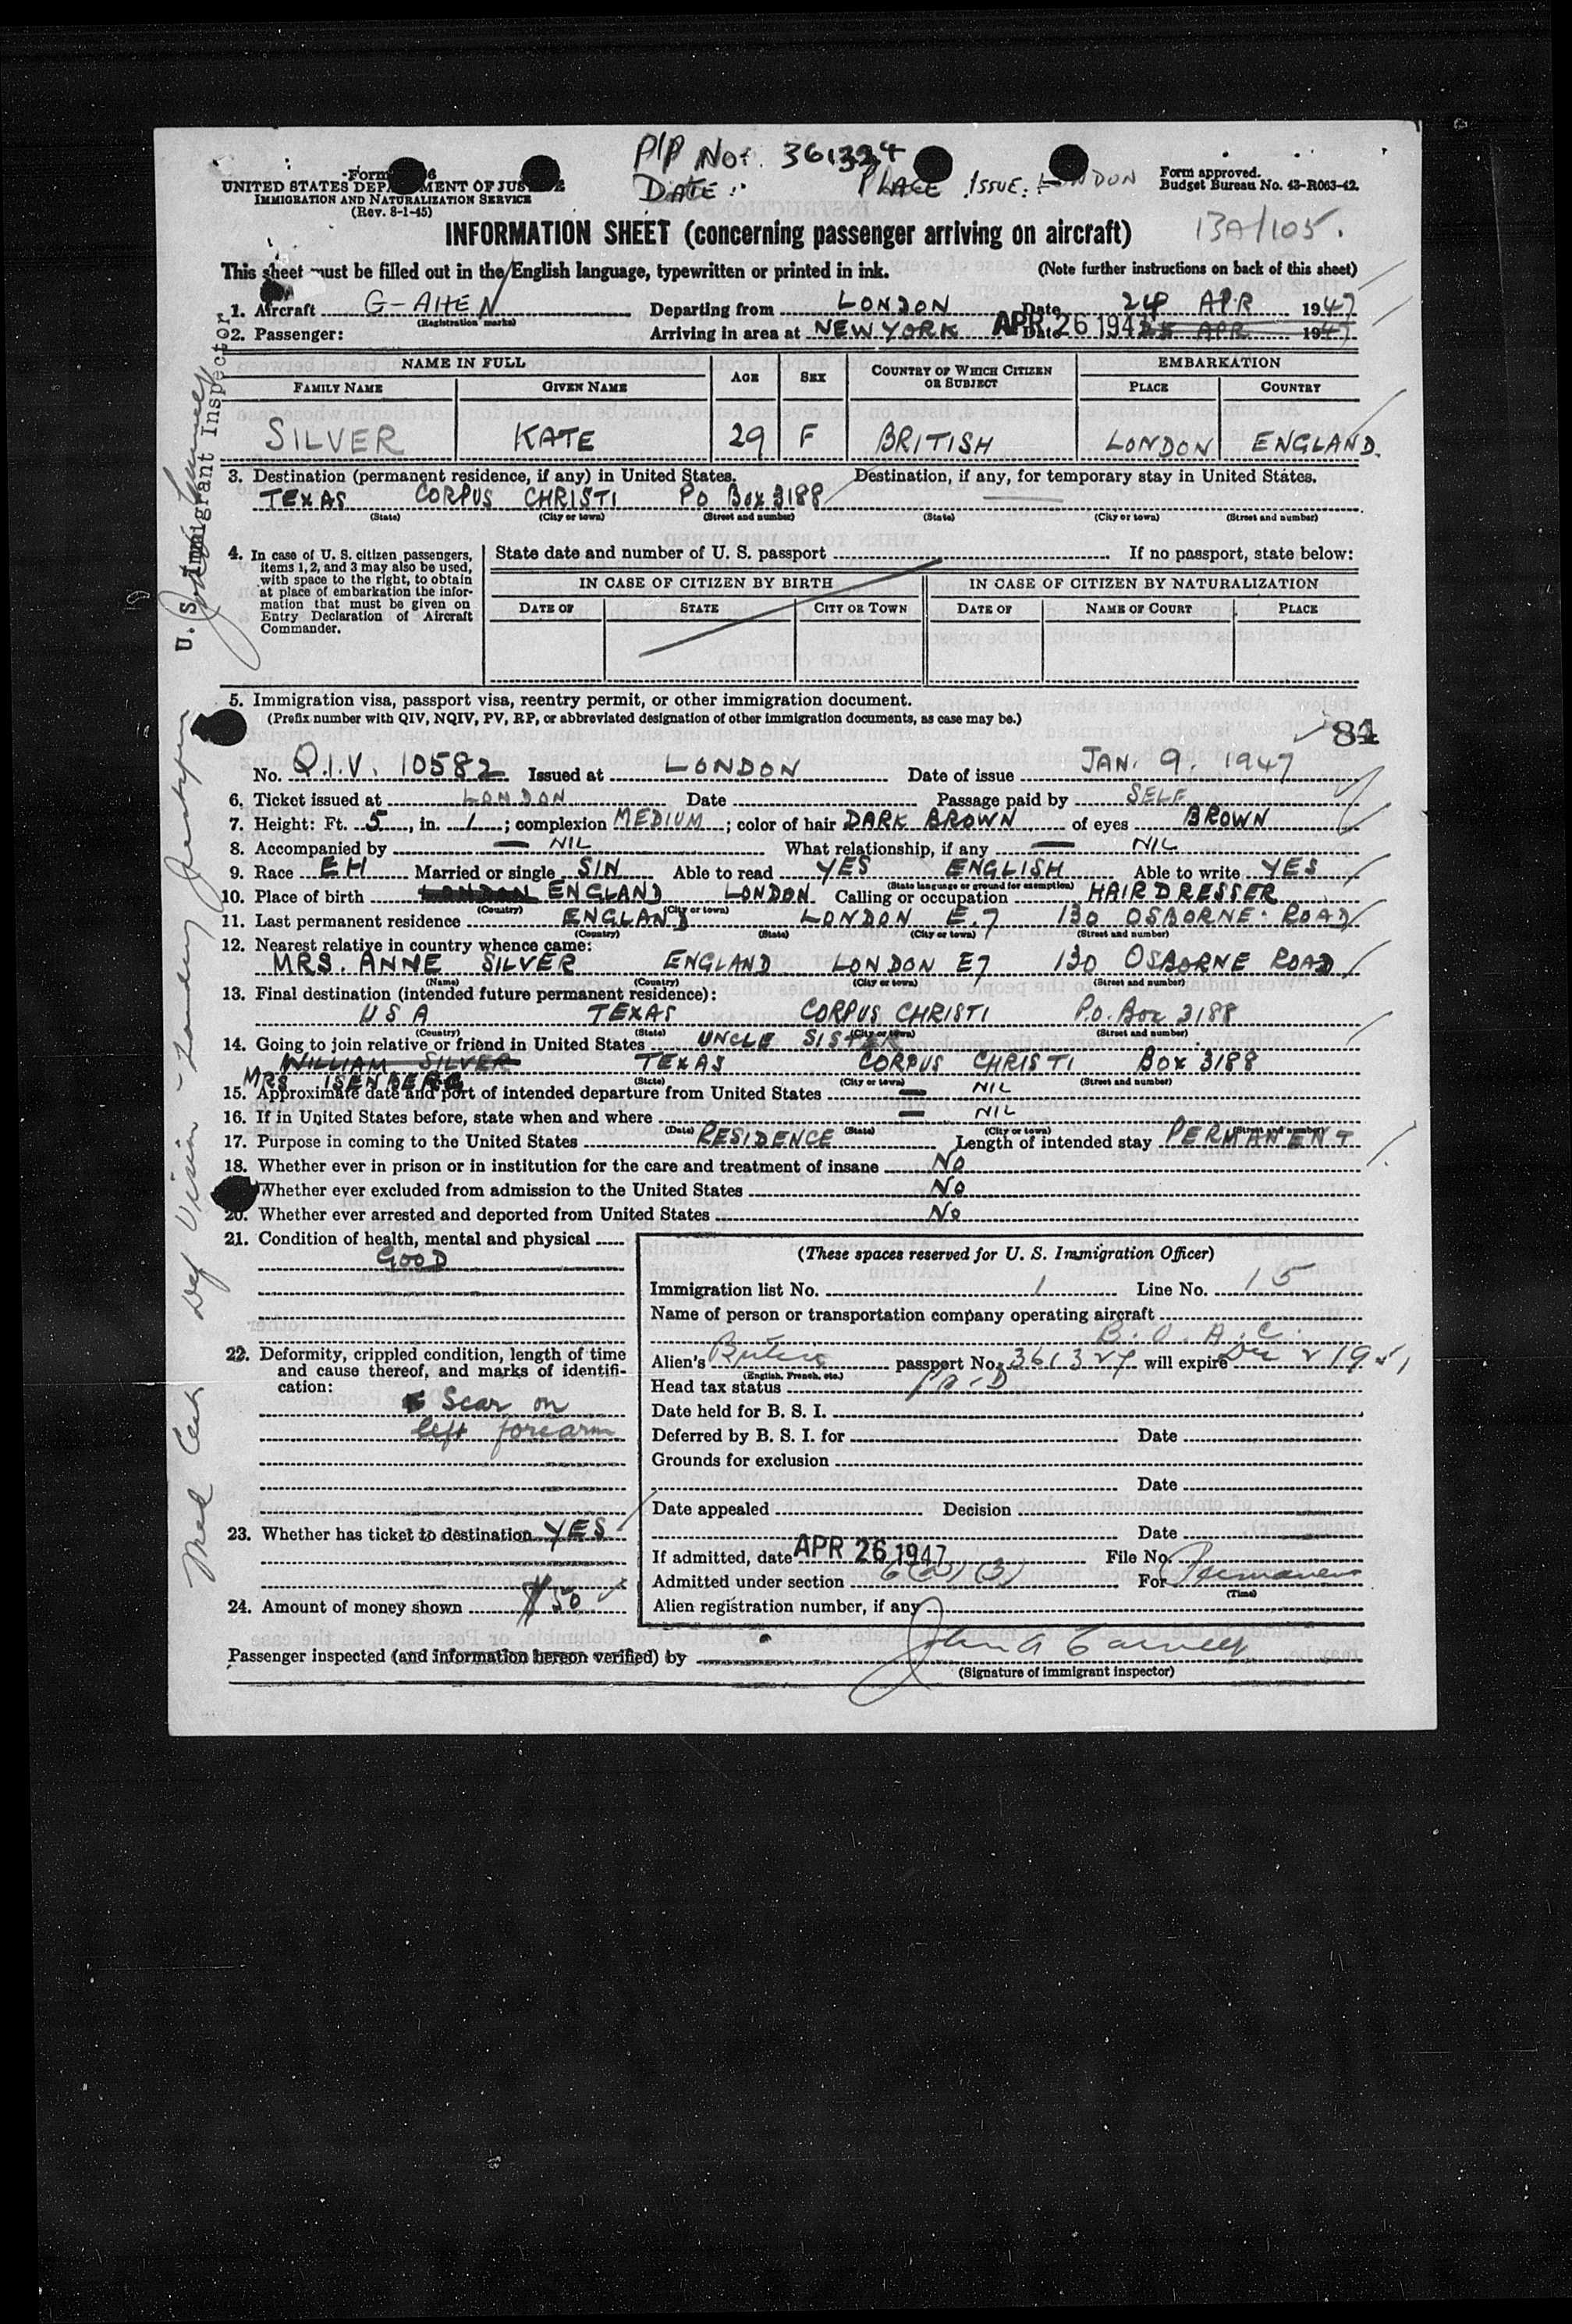 P/P No: 361324
DATE: PLACE ISSUE: LONDON
Form 6
UNITED STATES DEPARTMENT OF JUSTICE
IMMIGRATION AND NATURALIZATION SERVICE
(Rev. 8-1-45)
Form approved.
Budget Bureau No. 43-R063-42.
INFORMATION SHEET (concerning passenger arriving on aircraft) 13A/105.
This sheet must be filled out in the English language, typewritten or printed in ink. (Note further instructions on back of this sheet)
1. Aircraft G-AHEN Departing from LONDON Date 24 APR 1947
(Registration marks)
2. Passenger: Arriving in area at NEW YORK Date APR 26 1947 APR 1947
NAME IN FULL AGE SEX COUNTRY OF WHICH CITIZEN OR SUBJECT EMBARKATION
FAMILY NAME GIVEN NAME PLACE COUNTRY
SILVER KATE 29 F BRITISH LONDON ENGLAND.
3. Destination (permanent residence, if any) in United States. Destination, if any, for temporary stay in United States.
TEXAS CORPUS CHRISTI PO Box 3188
(State) (City or town) (Street and number) (State) (City or town) (Street and number)
4. In case of U. S. citizen passengers, items 1, 2, and 3 may also be used, with space to the right, to obtain at place of embarkation the information that must be given on Entry Declaration of Aircraft Commander.
State date and number of U. S. passport If no passport, state below:
IN CASE OF CITIZEN BY BIRTH IN CASE OF CITIZEN BY NATURALIZATION
DATE OF STATE CITY OR TOWN DATE OF NAME OF COURT PLACE
5. Immigration visa, passport visa, reentry permit, or other immigration document.
(Prefix number with QIV, NQIV, PV, RP, or abbreviated designation of other immigration documents, as case may be.)
84
No. Q.I.V. 10582 Issued at LONDON Date of issue JAN. 9. 1947
6. Ticket issued at LONDON Date Passage paid by SELF
7. Height: Ft. 5, in. 1; complexion MEDIUM; color of hair DARK BROWN of eyes BROWN
8. Accompanied by — NIL What relationship, if any — NIL
9. Race EH Married or single SIN Able to read YES ENGLISH Able to write YES
(State language or ground for exemption)
10. Place of birth LONDON ENGLAND LONDON Calling or occupation HAIRDRESSER
(Country) (City or town)
11. Last permanent residence ENGLAND LONDON E.7 130 OSBORNE ROAD
(Country) (State) (City or town) (Street and number)
12. Nearest relative in country whence came:
MRS. ANNE SILVER ENGLAND LONDON E7 130 OSBORNE ROAD
(Name) (Country) (City or town) (Street and number)
13. Final destination (intended future permanent residence):
USA TEXAS CORPUS CHRISTI P.O. Box 3188
(Country) (State) (City or town) (Street and number)
14. Going to join relative or friend in United States UNCLE SISTER
WILLIAM SILVER TEXAS CORPUS CHRISTI BOX 3188
MRS ISENBERG
(State) (City or town) (Street and number)
15. Approximate date and port of intended departure from United States — NIL
16. If in United States before, state when and where — NIL
(Date) (State) (City or town) (Street and number)
17. Purpose in coming to the United States RESIDENCE Length of intended stay PERMANENT
18. Whether ever in prison or in institution for the care and treatment of insane No
Whether ever excluded from admission to the United States No
20. Whether ever arrested and deported from United States No
21. Condition of health, mental and physical
GOOD
22. Deformity, crippled condition, length of time and cause thereof, and marks of identification:
Scar on
left forearm
23. Whether has ticket to destination YES
24. Amount of money shown $50
(These spaces reserved for U. S. Immigration Officer)
Immigration list No. 1 Line No. 15
Name of person or transportation company operating aircraft
B.O.A.C.
Alien's passport No. 361324 will expire Dec 2 1951
(English, French, etc.)
Head tax status PAID
Date held for B. S. I.
Deferred by B. S. I. for Date
Grounds for exclusion
Date
Date appealed Decision
Date
If admitted, date APR 26 1947 File No.
Admitted under section 6 (3) For Permanent
(Time)
Alien registration number, if any
Passenger inspected (and information hereon verified) by
(Signature of immigrant inspector)
U. S. Immigrant Inspector
Med Cert Def Vision